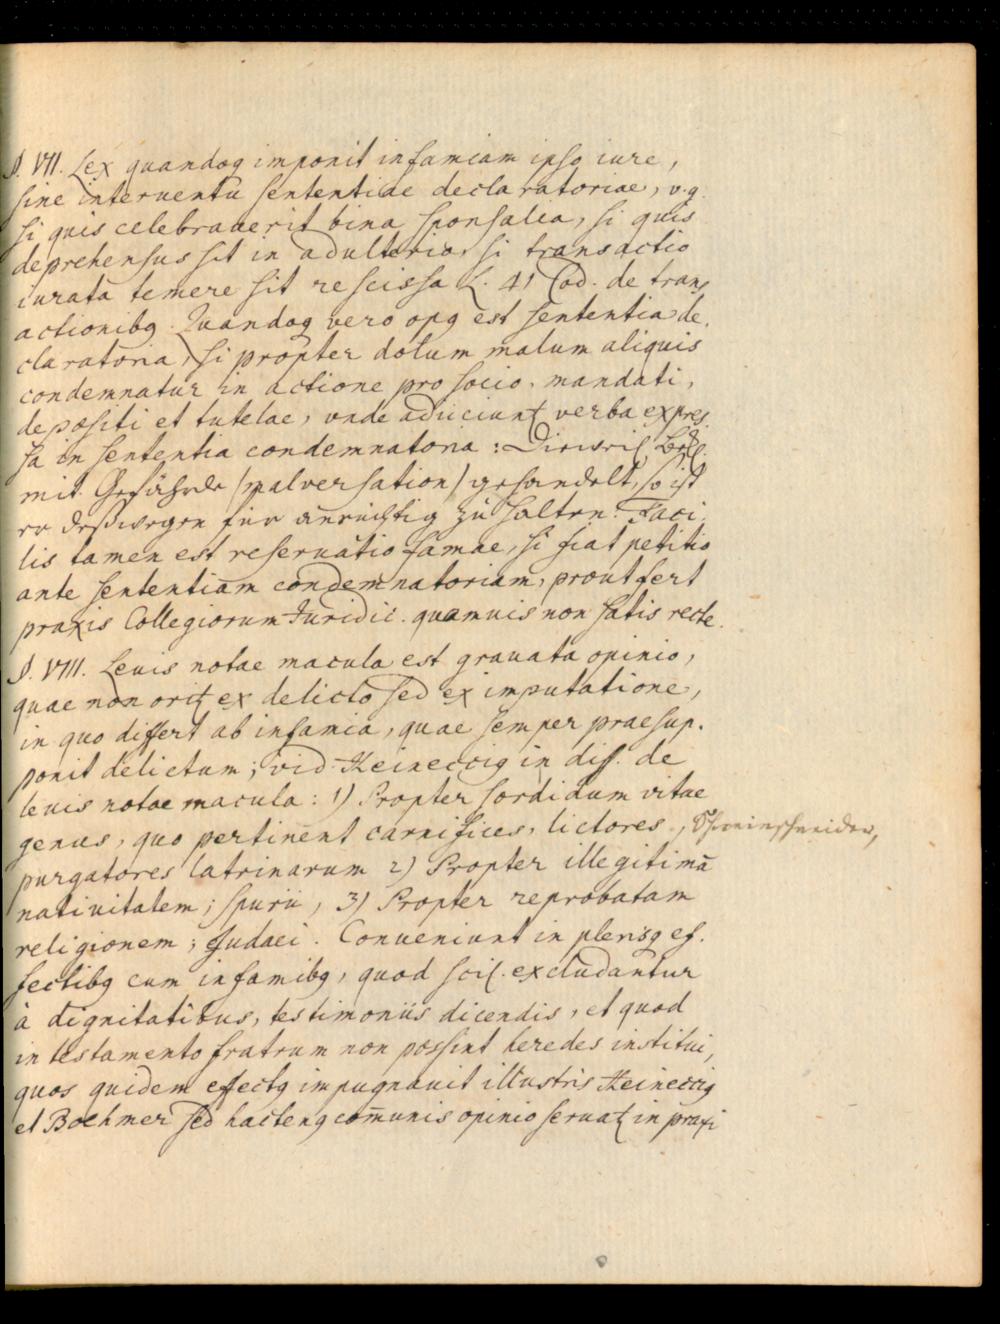 §. VII. Lex quandoq imponit infamiam ipso iure,
sine interventu sententiae declaratoriae, v.g.
si quis celebraverit bina sponsalia, si quis
deprehensus sit in adulterio, si transactio
iurata temere sit rescissa L. 41 Cod. de trans
actionibq. Quandoq vero opq est sententia de.
claratoria, si propter dolum malum aliquis
condemnatur in actione pro socio, mandati,
depositi et tutelae, vnde adiiciunt verba expres
sa in sententia condemnatoria:
mit Gefährde (malversation) gehandelt, so ist
er deßwegen für anrüchtig zu halten. Faci
lis tamen est reservatio famae, si fiat petitio
ante sententiam condemnatoriam, prout fert
praxis Collegiorum Juridic. quamuis non satis recte.
§. VIII. Levis notae macula est gravata opinio,
quae non orit ex delicto sed ex imputatione,
in quo differt ab infamia, quae semper praesup.
ponit delictum; vid. Heineccig in diss. de
levis notae macula: 1) Propter sordidum vitae
genus, quo pertinent carnifices, lictores, Schweinschneider,
purgatores latrinarum 2) Propter illegitimā
nativitatem; spurii, 3) Propter reprobatam
religionem; Judaei. Conveniunt in plerisq ef.
fectibq cum infamibq, quod scil. excludantur
à dignitatibus, testimoniis dicendis, et quod
in testamento fratrum non possint heredes institui,
quos quidem effectq impugnavit illustris Heineccig
et Boehmer sed hactenq com̄unis opinio servat in praxi